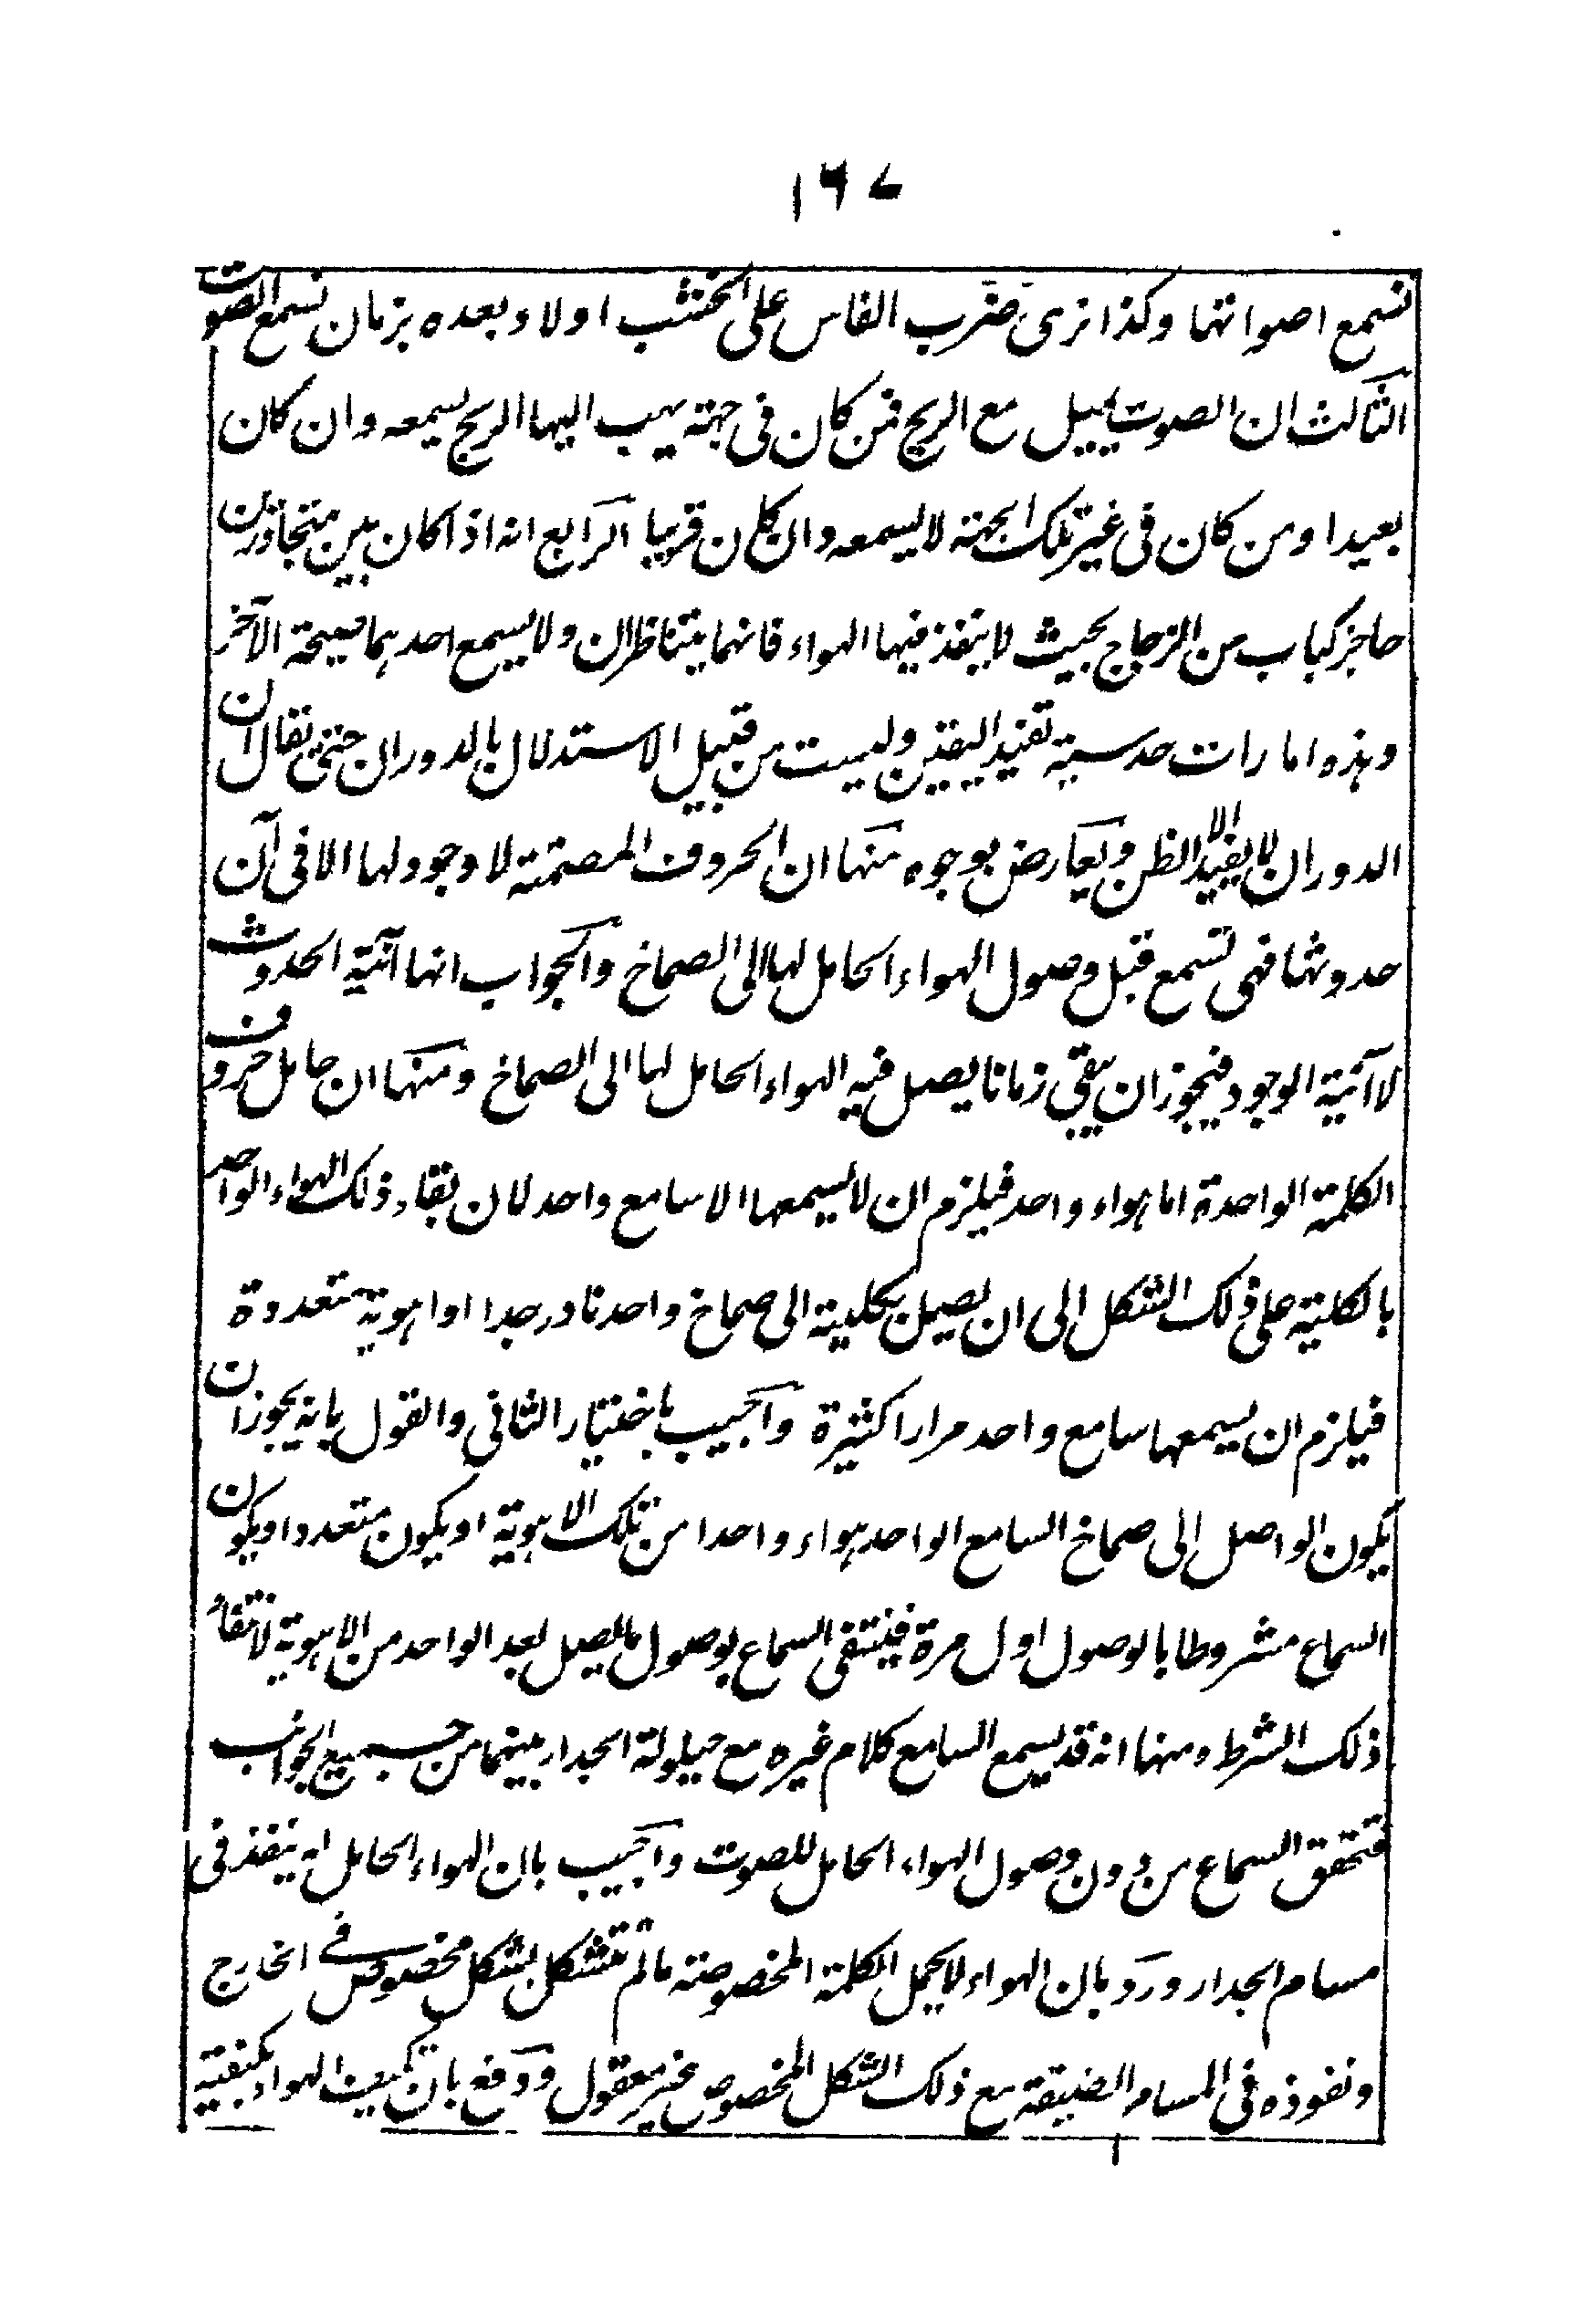 ١٦٧
نسمع اصواتها وكذا نرى ضرب الفاس على الخشب اولا وبعده بزمان نسمع الصوت
الثالث ان الصوت يميل مع الريح فمن كان فى جهة يهب اليها الريح يسمعه وان كان
بعيدا ومن كان فى غير تلك الجهة لا يسمعه وان كان قريبا الرابع انه اذا كان بين متجاذبين
حاجز كباب من الزجاج بحيث لا ينفذ فيها الهواء فانهما يتناظران ولا يسمع احدهما صيحة الآخر
وهذه امارات حدسية تفيد اليقين وليست من قبيل الاستدلال بالدوران حتى يقال ان
الدوران لا يفيد الا الظن ويعارض بوجوه منها ان الحروف المصمتة لا وجود لها الا فى آن
حدوثها فهى تسمع قبل وصول الهواء الحامل لها الى الصماخ والجواب انها آنية الحدوث
لا آنية الوجود فيجوز ان يبقى زمانا يصل فيه الهواء الحامل لها الى الصماخ ومنها ان حامل حروف
الكلمة الواحدة اما هواء واحد فيلزم ان لا يسمعها الا سامع واحد لان بقاء ذلك الهواء الواحد
بالكلية على ذلك الشكل الى ان يصل بكليته الى صماخ واحد نادر جدا او اهوية متعددة
فيلزم ان يسمعها سامع واحد مرارا كثيرة واجيب باختيار الثانى والقول بانه يجوز ان
يكون الواصل الى صماخ السامع الواحد هواء واحدا من تلك الاهوية او يكون متعددا ويكون
السماع مشروطا بالوصول اول مرة فينتفى السماع بوصول ما يصل بعد الواحد من الاهوية لانتفاء
ذلك الشرط ومنها انه قد يسمع السامع كلام غيره مع حيلولة الجدار بينهما من جميع الجوانب
فتحقق السماع من دون وصول الهواء الحامل للصوت واجيب بان الهواء الحامل له ينفذ فى
مسام الجدار ورد بان الهواء لا يحمل الكلمة المخصوصة ما لم تتشكل بشكل مخصوص فى الخارج
ونفوذه فى المسام الضيقة مع ذلك الشكل المخصوص غير معقول ودفع بان تكيف الهواء بكيفية